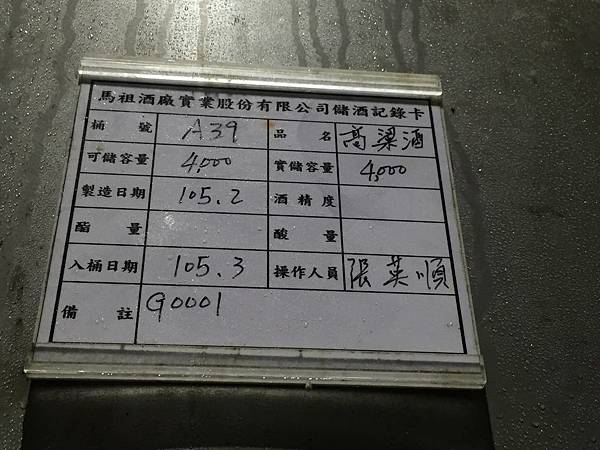 馬祖酒廠實業股份有限公司儲酒記錄卡
桶號 A39 品名 高粱酒
可儲容量 4,000 實儲容量 4,000
製造日期 105.2 酒精度
酯量 酸量
入桶日期 105.3 操作人員 張英順
備註 G0001